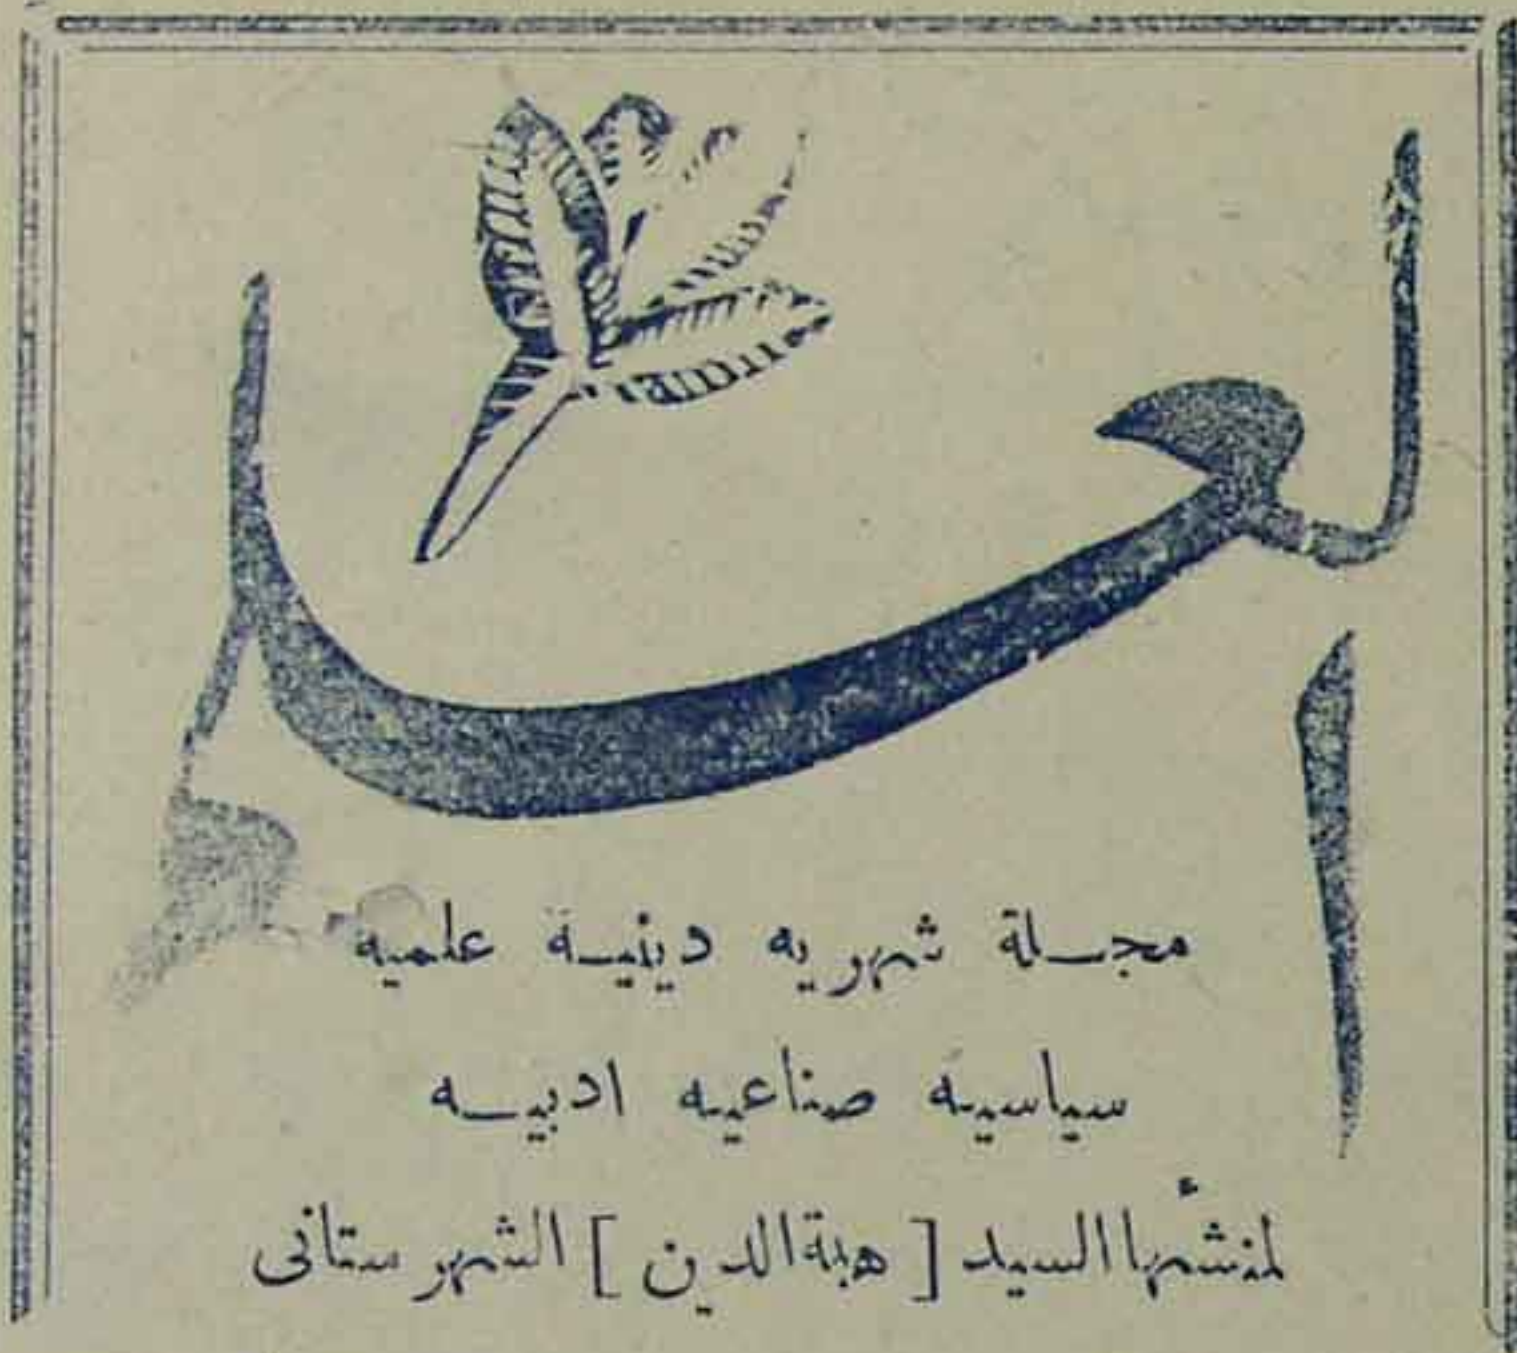 العلم
مجلة شهريه دينية علميه
سياسيه صناعيه ادبيه
لمنشئها السيد [ هبة الدين ] الشهرستانى